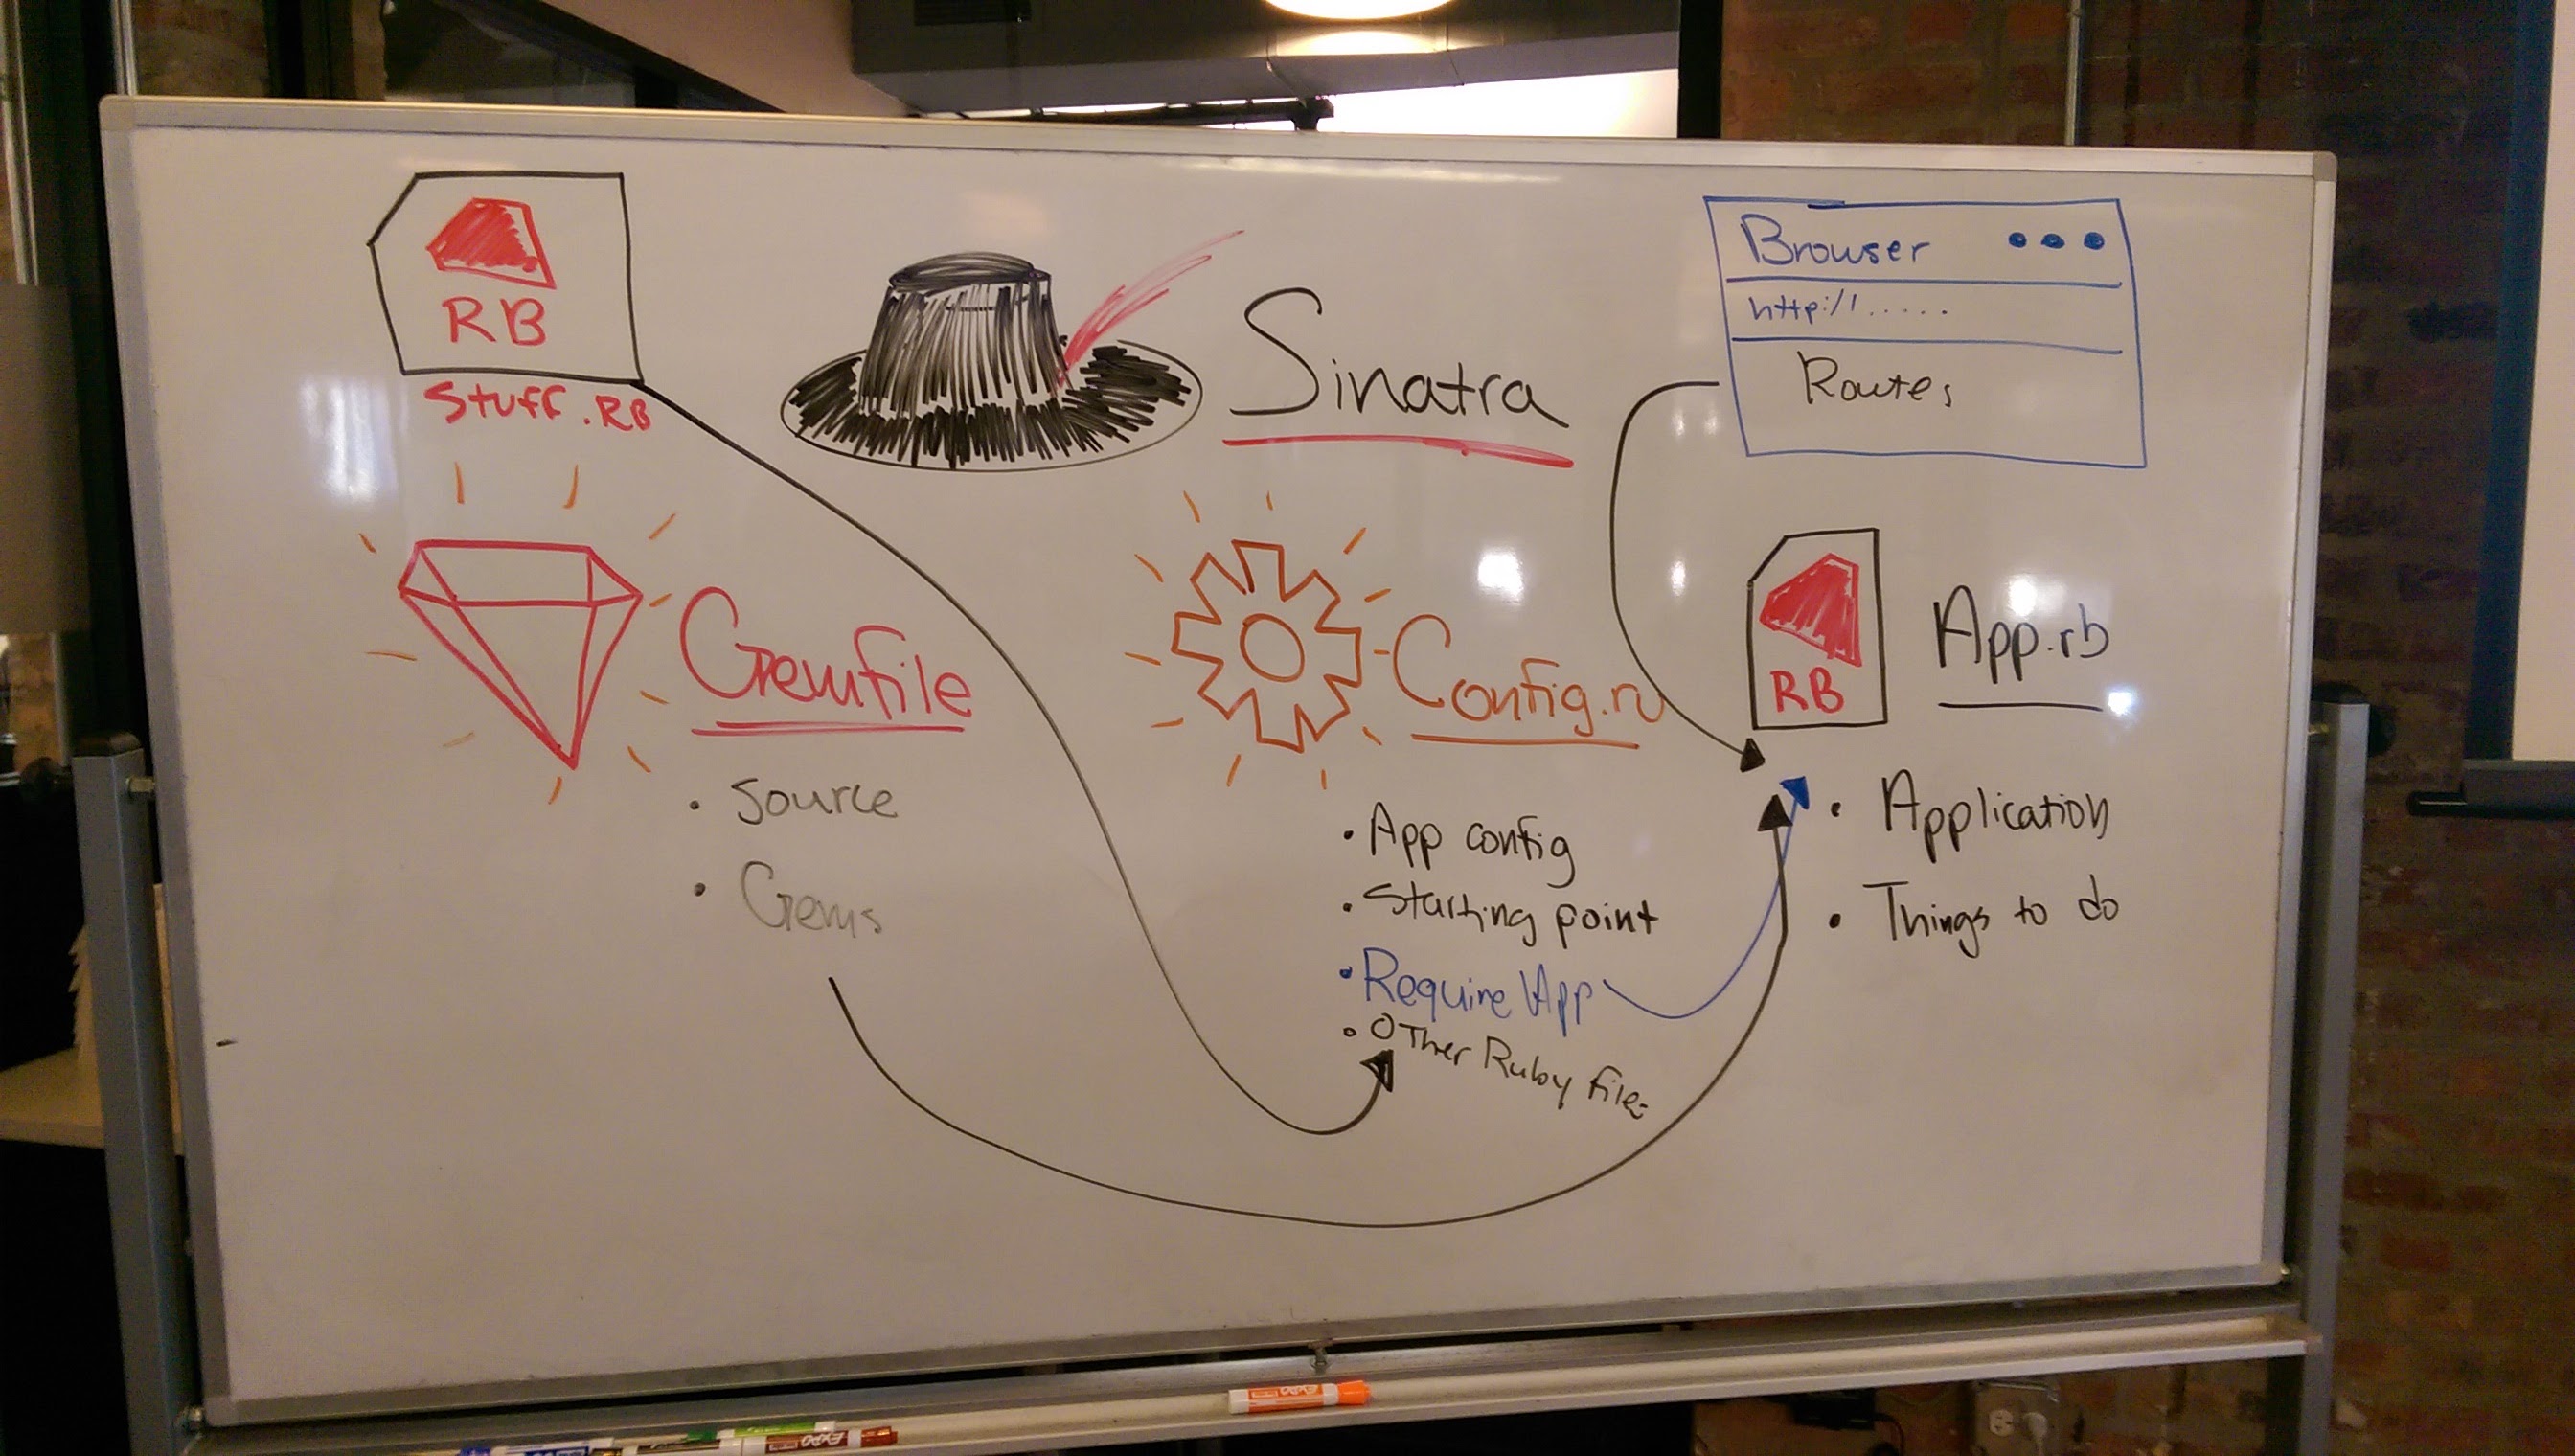 RB
Stuff.RB
Sinatra
Browser
http://.....
Routes
Gemfile
• Source
• Gems
Config.ru
• App config
• Starting point
• Require App
• Other Ruby files
RB
App.rb
• Application
• Things to do
EXPO
EXPO